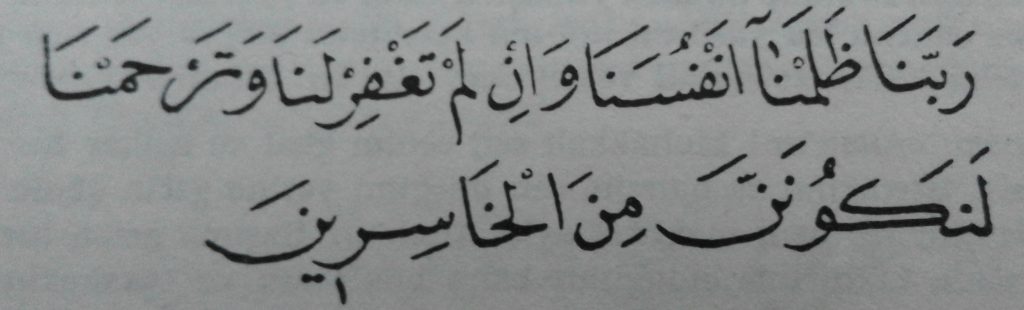 رَبَّنَا ظَلَمْنَآ اَنْفُسَنَا وَاِنْ لَمْ تَغْفِرْ لَنَا وَتَرْحَمْنَا
لَنَكُونَنَّ مِنَ الْخَاسِرِينَ